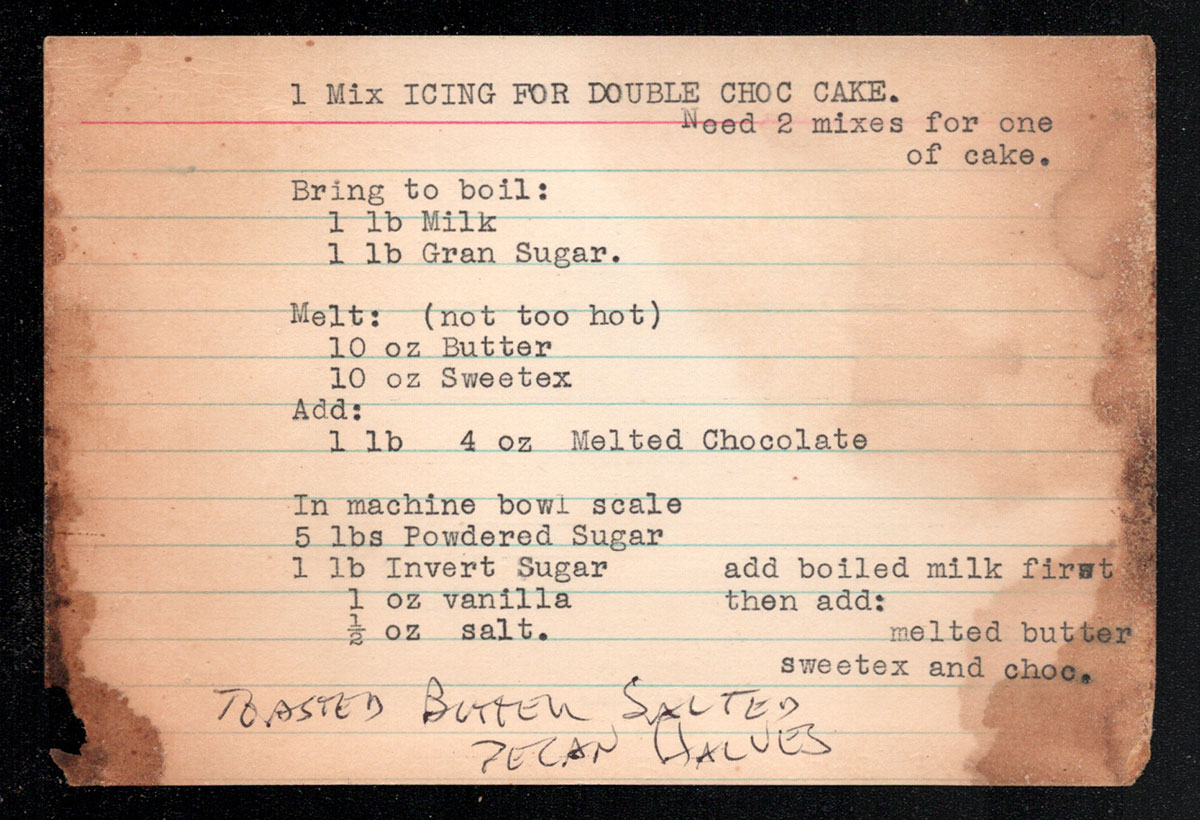 1 Mix ICING FOR DOUBLE CHOC CAKE.
Need 2 mixes for one
of cake.
Bring to boil:
1 lb Milk
1 lb Gran Sugar.
Melt: (not too hot)
10 oz Butter
10 oz Sweetex
Add:
1 lb 4 oz Melted Chocolate
In machine bowl scale
5 lbs Powdered Sugar
1 lb Invert Sugar
1 oz vanilla
½ oz salt.
add boiled milk first
then add:
melted butter
sweetex and choc.
TOASTED BUTTER SALTED
PECAN HALVES